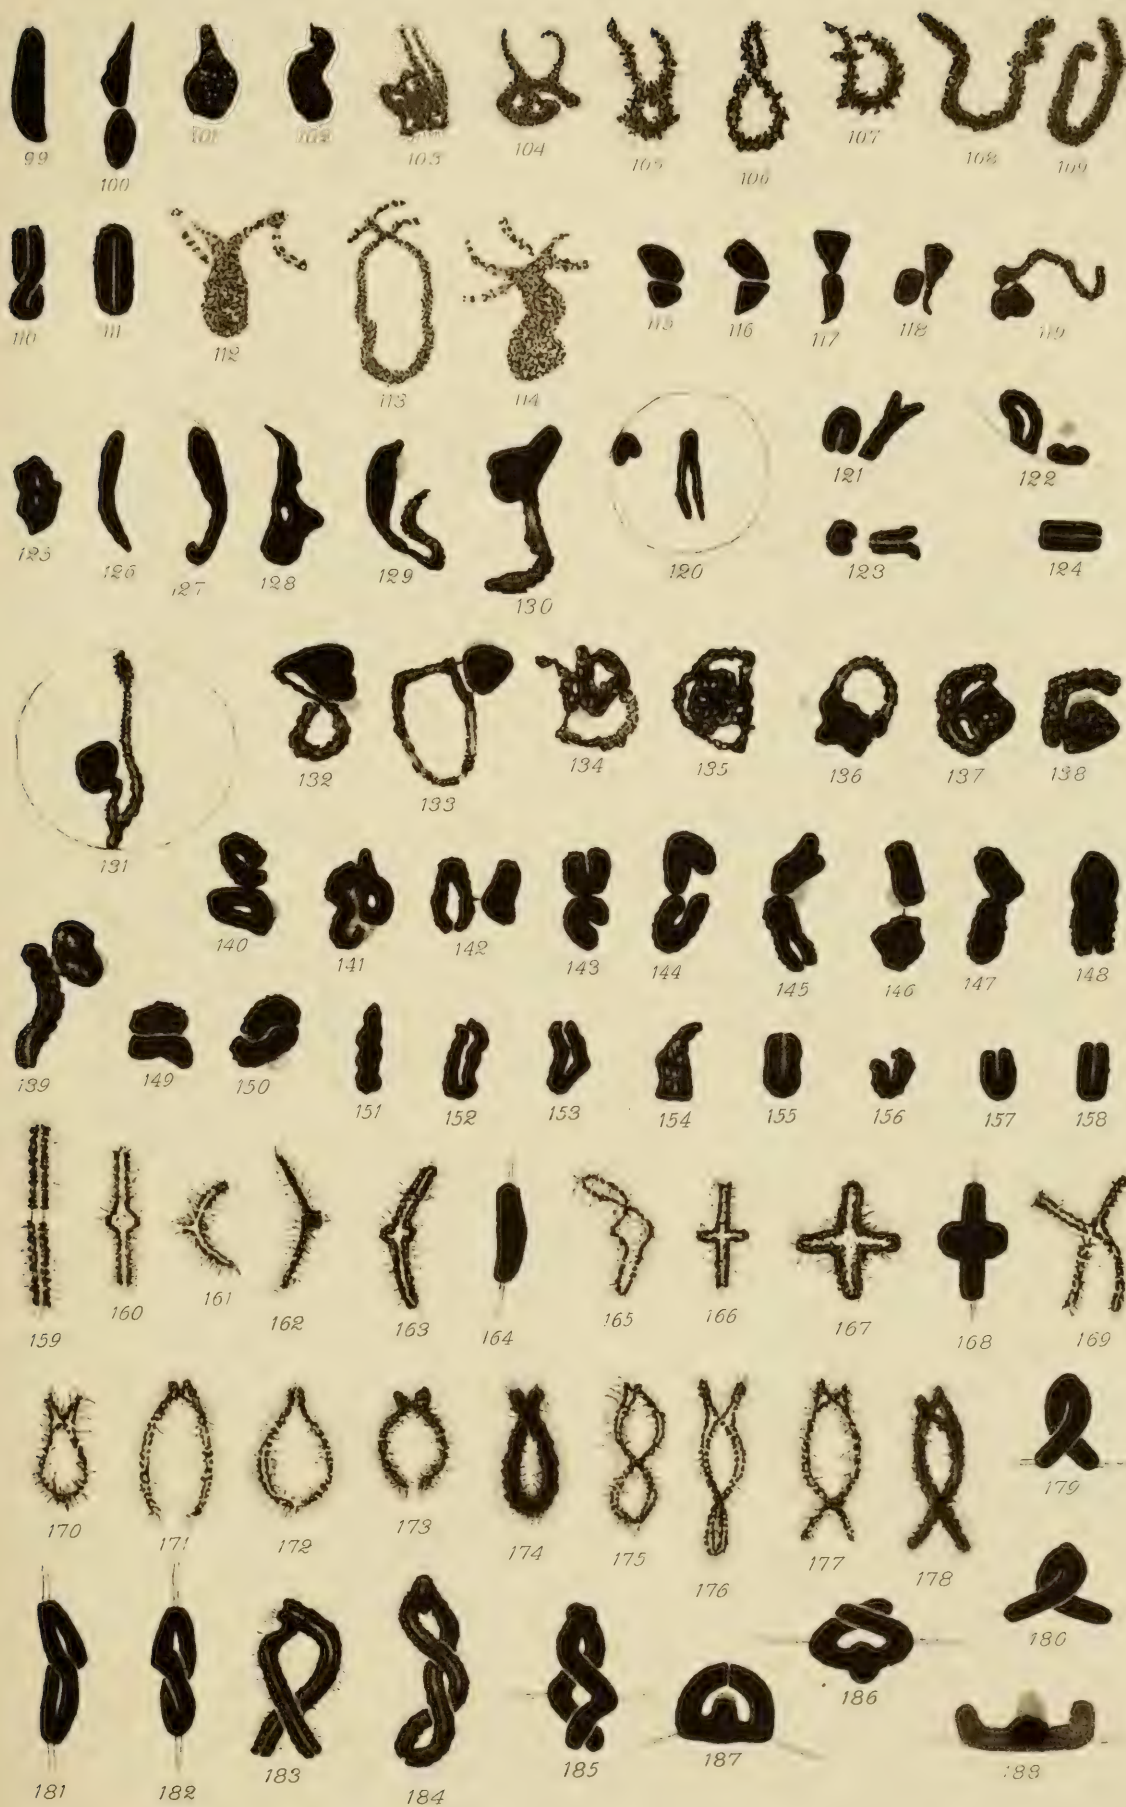 99 100 101 102 103 104 105 106 107 108 109
110 111 112 113 114 115 116 117 118 119
125 126 127 128 129 130 120 121 122 123 124
131 132 133 134 135 136 137 138
139 140 141 142 143 144 145 146 147 148
149 150 151 152 153 154 155 156 157 158
159 160 161 162 163 164 165 166 167 168 169
170 171 172 173 174 175 176 177 178 179
180
181 182 183 184 185 186 187 188